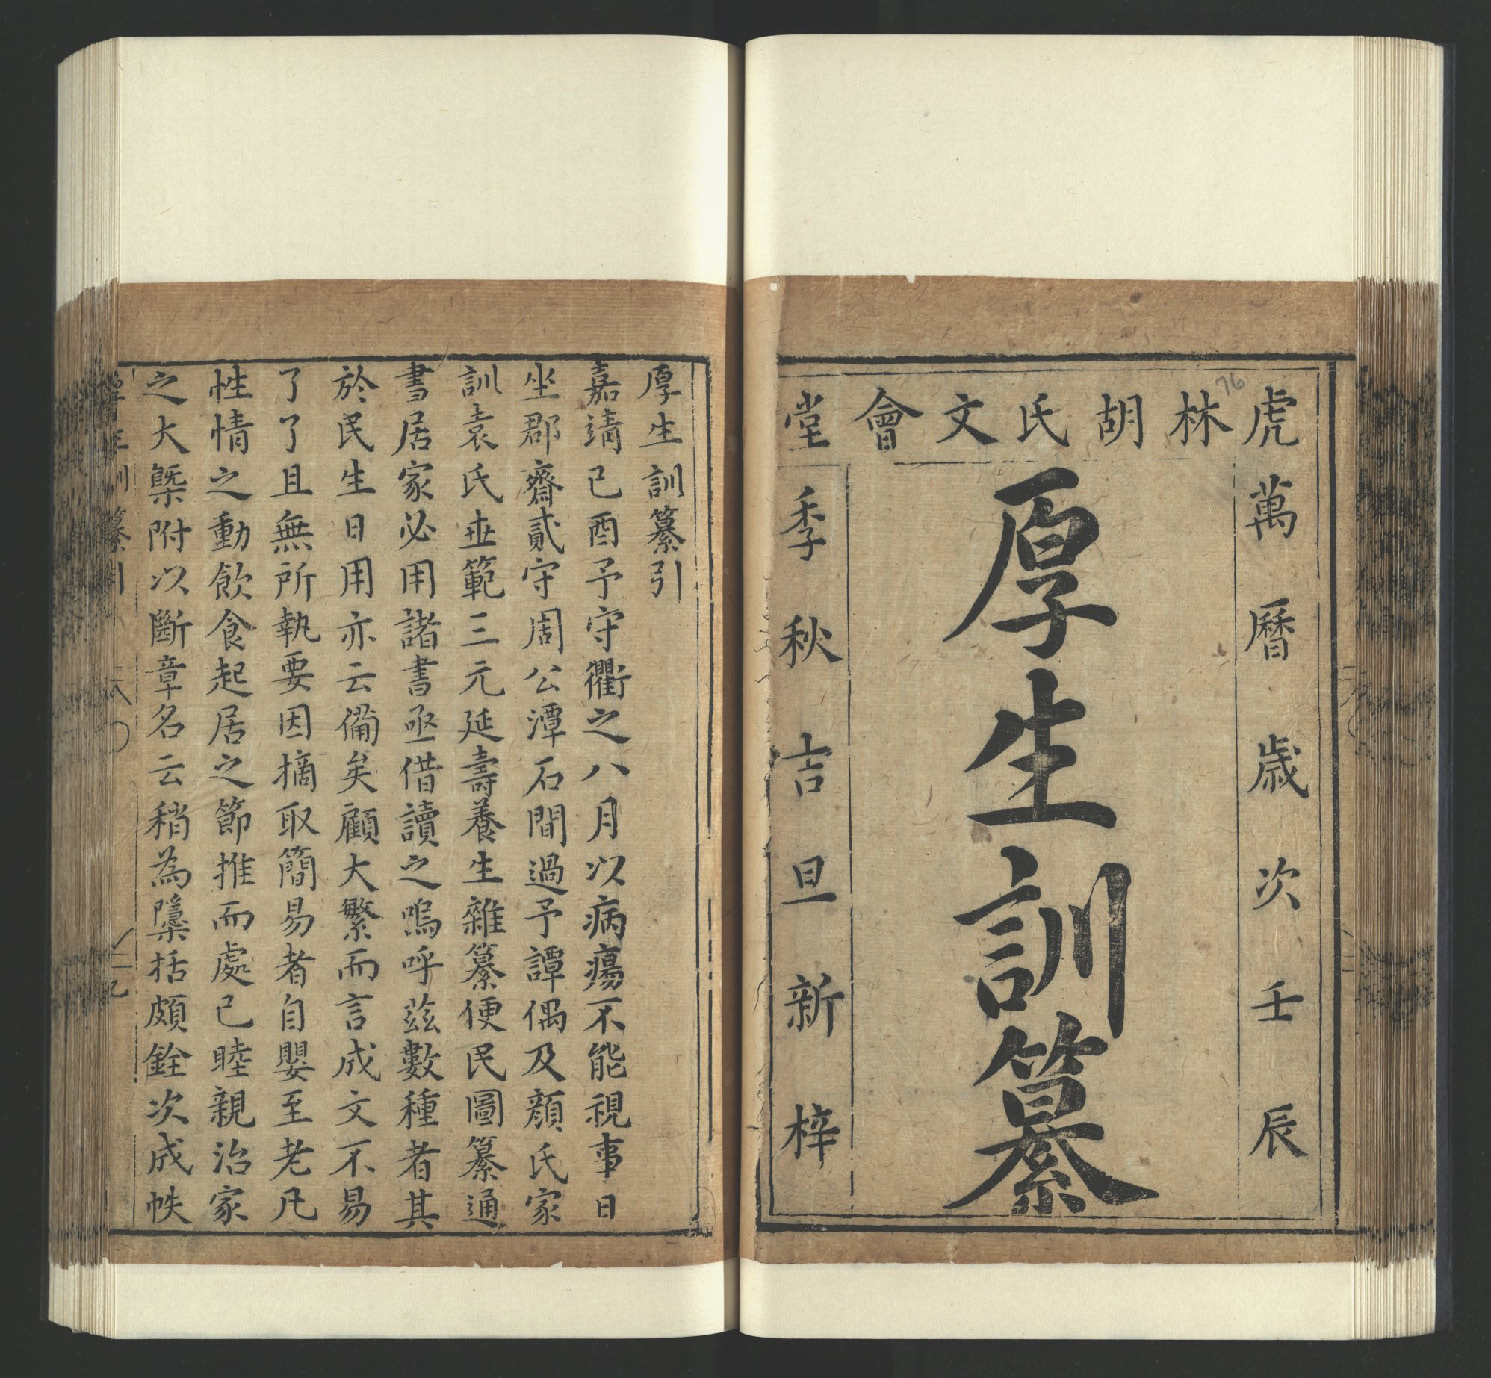 虎林胡氏文會堂
萬曆歲次壬辰
厚生訓纂
季秋吉旦新梓
76
厚生訓纂引
嘉靖己酉予守衢之八月以病瘍不能視事日
坐郡齋貳守周公潭石間過予譚偶及顏氏家
訓袁氏世範三元延壽養生雜纂便民圖纂通
書居家必用諸書亟借讀之嗚呼茲數種者其
於民生日用亦云備矣顧大繁而言成文不易
了了且無所執要因摘取簡易者自嬰至老凡
性情之動飲食起居之節推而處己睦親治家
之大槩附以斷章名云稍為櫽括頗銓次成帙